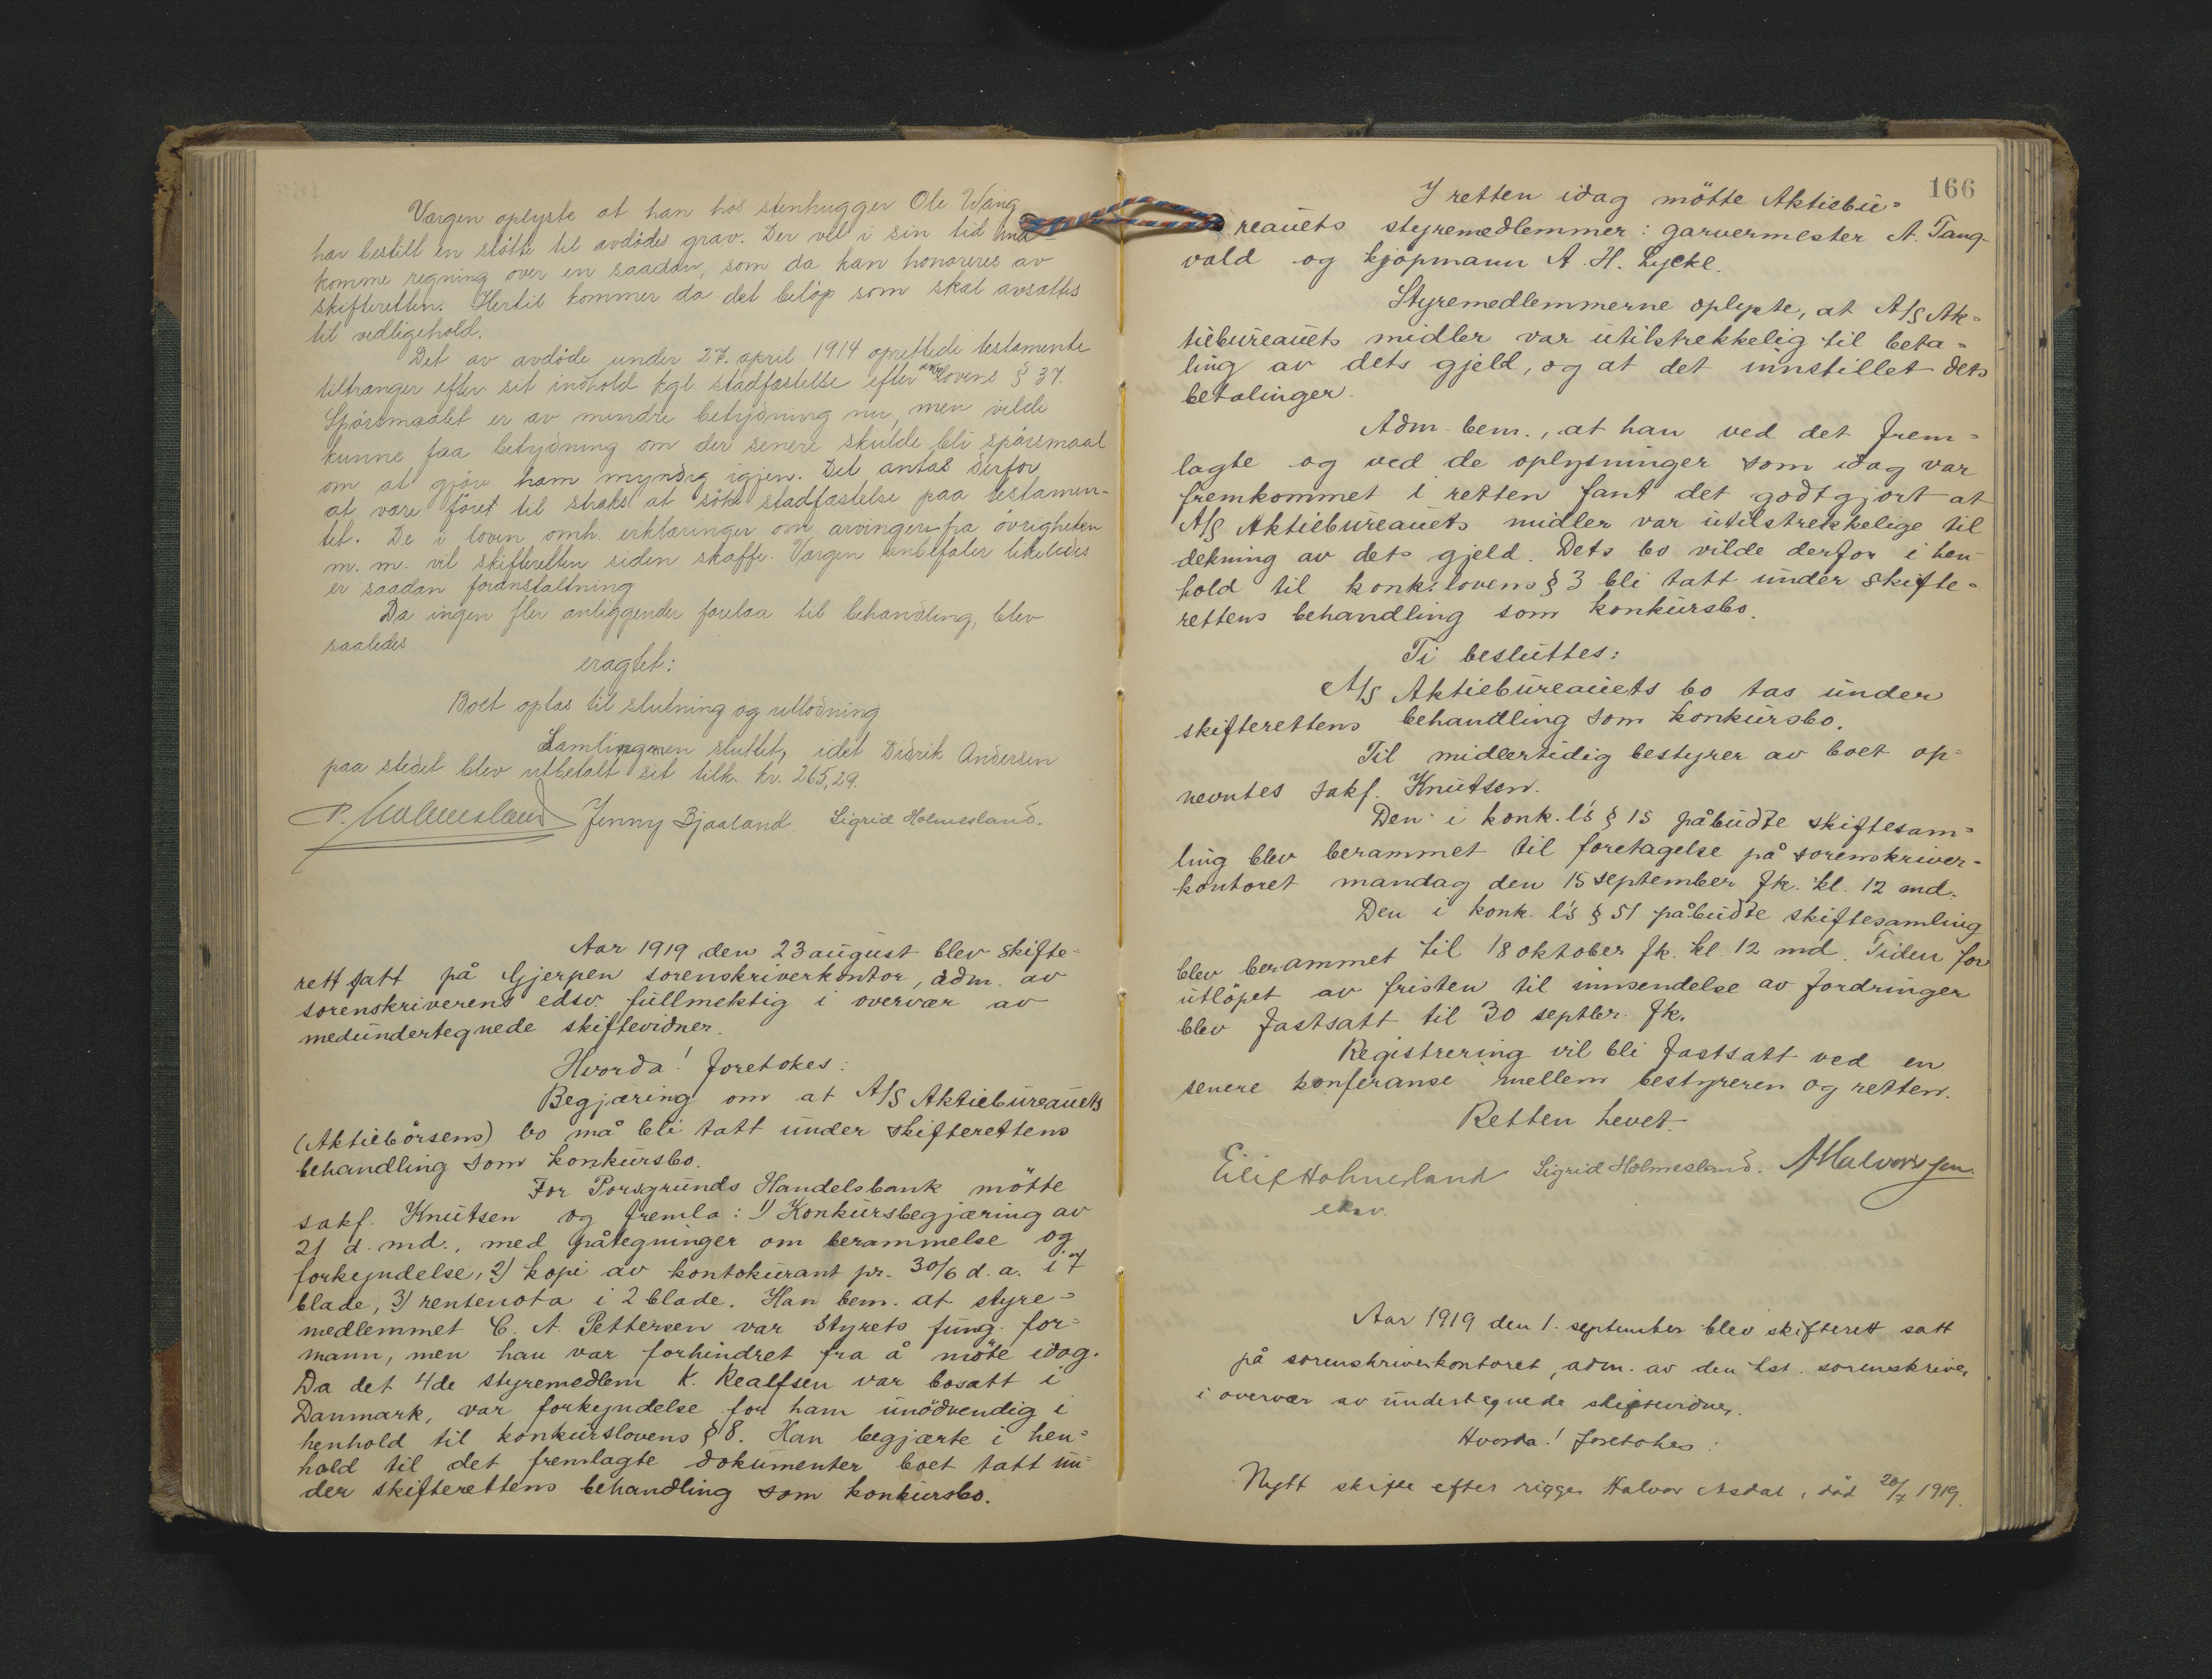 Værgen oplyste at han hos stenhugger Ole Wang
har bestilt en støtte til avdødes grav. Der vil i sin tid ind-
komme regning over en saadan, som da kan honoreres av
skifteretten. Hertil kommer da det beløp som skal avsættes
til vedligehold.
Det av avdøde under 27. april 1914 oprettede testamente
tiltrænger efter sit indhold kgl. stadfæstelse efter arvelovens § 37.
Spörsmaalet er av mindre betydning nu, men vilde
kunne faa betydning om der senere skulde bli spörsmaal
om at gjöre ham myndig igjen. Det antas derfor
at være föiet til straks at söke stadfæstelse paa testamen-
tet. De i loven omh. erklæringer om arvingers fra övrigheten
m. m. vil skifteretten siden skaffe. Værgen anbefaler likeledes
er saadan foranstaltning
Da ingen fler anliggender forelaa til behandling, blev
saaledes
eragtet:
Boet optas til slutning og utlodning
Samlingen sluttet, idet Didrik Andersen
paa stedet blev utbetalt sit tilk. kr. 265,29.
P. Holmesland Jenny Bjaaland Sigrid Holmesland.
Aar 1919 den 23 august blev skifte=
rett satt på Gjerpen sorenskriverkontor, adm. av
sorenskriverens edsv. fullmektig i overvær av
medundertegnede skiftevidner.
Hvorda! foretokes:
Begjæring om at A/S Aktiebureauets
(Aktiebörsens) bo må bli tatt under skifterettens
behandling som konkursbo.
For Porsgrunds Handelsbank mötte
sakf. Knutsen og fremla: 1) Konkursbegjæring av
21 d. md., med påtegninger om berammelse og
forkyndelse, 2) kopi av kontokurant pr. 30/6 d. a. i 7
blade, 3) rentenota i 2 blade. Han bem. at styre=
medlemmet C. A. Pettersen var styrets fung. for=
mann, men han var forhindret fra å möte idag.
Da det 4de styremedlem K. Realfsen var bosatt i
Danmark, var forkyndelse for ham unödvendig i
henhold til konkurslovens § 8. Han begjærte i hen=
hold til det fremlagte dokumenter boet tatt un=
der skifterettens behandling som konkursbo.
166
I retten idag mötte Aktiebu=
reauets styremedlemmer: garvermester A. Tang-
vald og kjöpmann A. H. Lycke.
Styremedlemmerne oplyste, at A/S Ak=
tiebureauets midler var utilstrekkelig til beta=
ling av dets gjeld, og at det innstillet dets
betalinger.
Adm. bem., at han ved det frem=
lagte og ved de oplysninger som idag var
fremkommet i retten fant det godtgjort at
A/S Aktiebureauets midler var utilstrekkelige til
dekning av dets gjeld. Dets bo vilde derfor i hen-
hold til konk. lovens § 3 bli tatt under skifte=
rettens behandling som konkursbo.
Ti besluttes:
A/S Aktiebureauets bo tas under
skifterettens behandling som konkursbo.
Til midlertidig bestyrer av boet op=
nevntes sakf. Knutsen.
Den i konk. l's § 15 påbudte skiftesam=
ling blev berammet til foretagelse på sorenskriver-
kontoret mandag den 15 september fk. kl. 12 md.
Den i konk. l's § 51 påbudte skiftesamling
blev berammet til 18 oktober fk. kl. 12 md. Tiden for
utlöpet av fristen til innsendelse av fordringer
blev fastsatt til 30 septbr. fk.
Registrering vil bli fastsatt ved en
senere konferanse mellem bestyreren og retten.
Retten hevet.
Eilif Holmesland Sigrid Holmesland. A Halvorsen
edsv.
Aar 1919 den 1. september blev skifterett satt
på sorenskriverkontoret, adm. av den kst. sorenskriver
i overvær av undertegnede skiftevidner.
Hvorda! foretokes:
Nytt skifte efter rigger Halvor Aasdal, död 20/7 1919.